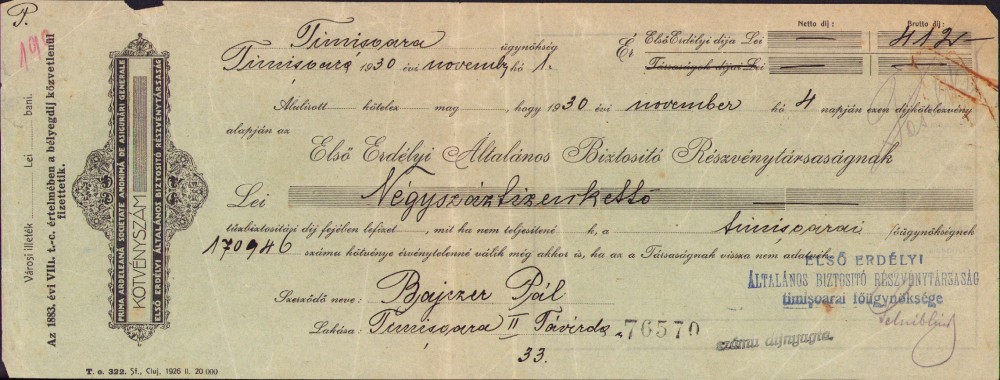 P.
Városi illeték Lei bani.
Az 1883. évi VIII. t.-c. értelmében a bélyegdíj közvetlenül fizettetik.
PRIMA ARDELEANĂ SOCIETATE ANONIMĂ DE ASIGURĂRI GENERALE
KÖTVÉNYSZÁM
ELSŐ ERDÉLYI ÁLTALÁNOS BIZTOSITÓ RÉSZVÉNYTÁRSASÁG
Netto dij: Brutto dij:
Timișoara ügynökség És Első Erdélyi dija Lei — 412
Timișoara 1930 évi november hó 1. Társaságok dijai Lei — —
Alulirott kötelez mag , hogy 1930 évi november hó 4 napján ezen dijkötelezvény
alapján az
Első Erdélyi Általános Biztositó Részvénytársaságnak
Lei Négyszáztizenkettő
tűzbiztositási dij fejében lefizet , mit ha nem teljesitené k, a timișoarai főügynökségnek
170946 számu kötvénye érvénytelenné válik még akkor is, ha az a Társaságnak vissza nem adatnék.
Szerződő neve: Bajczer Pál
Lakása: Timișoara II Távirda
33.
76570
számu díjnyugta
ELSŐ ERDÉLYI
ÁLTALÁNOS BIZTOSITÓ RÉSZVÉNYTÁRSASÁG
timișoarai főügynöksége
T. o. 322. Sf., Cluj, 1926 II. 20.000